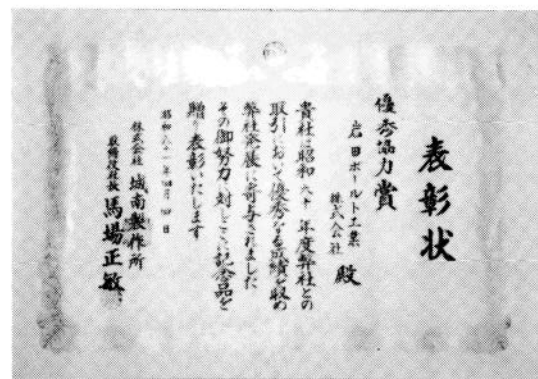 表彰状
優秀協力賞
岩田ボールト工業
株式会社 殿
貴社は昭和六十年度弊社との
取引において優秀なる成績を収め
弊社発展に寄与されました
その御努力に対しここに記念品を
贈り表彰いたします
昭和六十一年四月四日
株式会社 城南製作所
取締役社長 馬場正敏